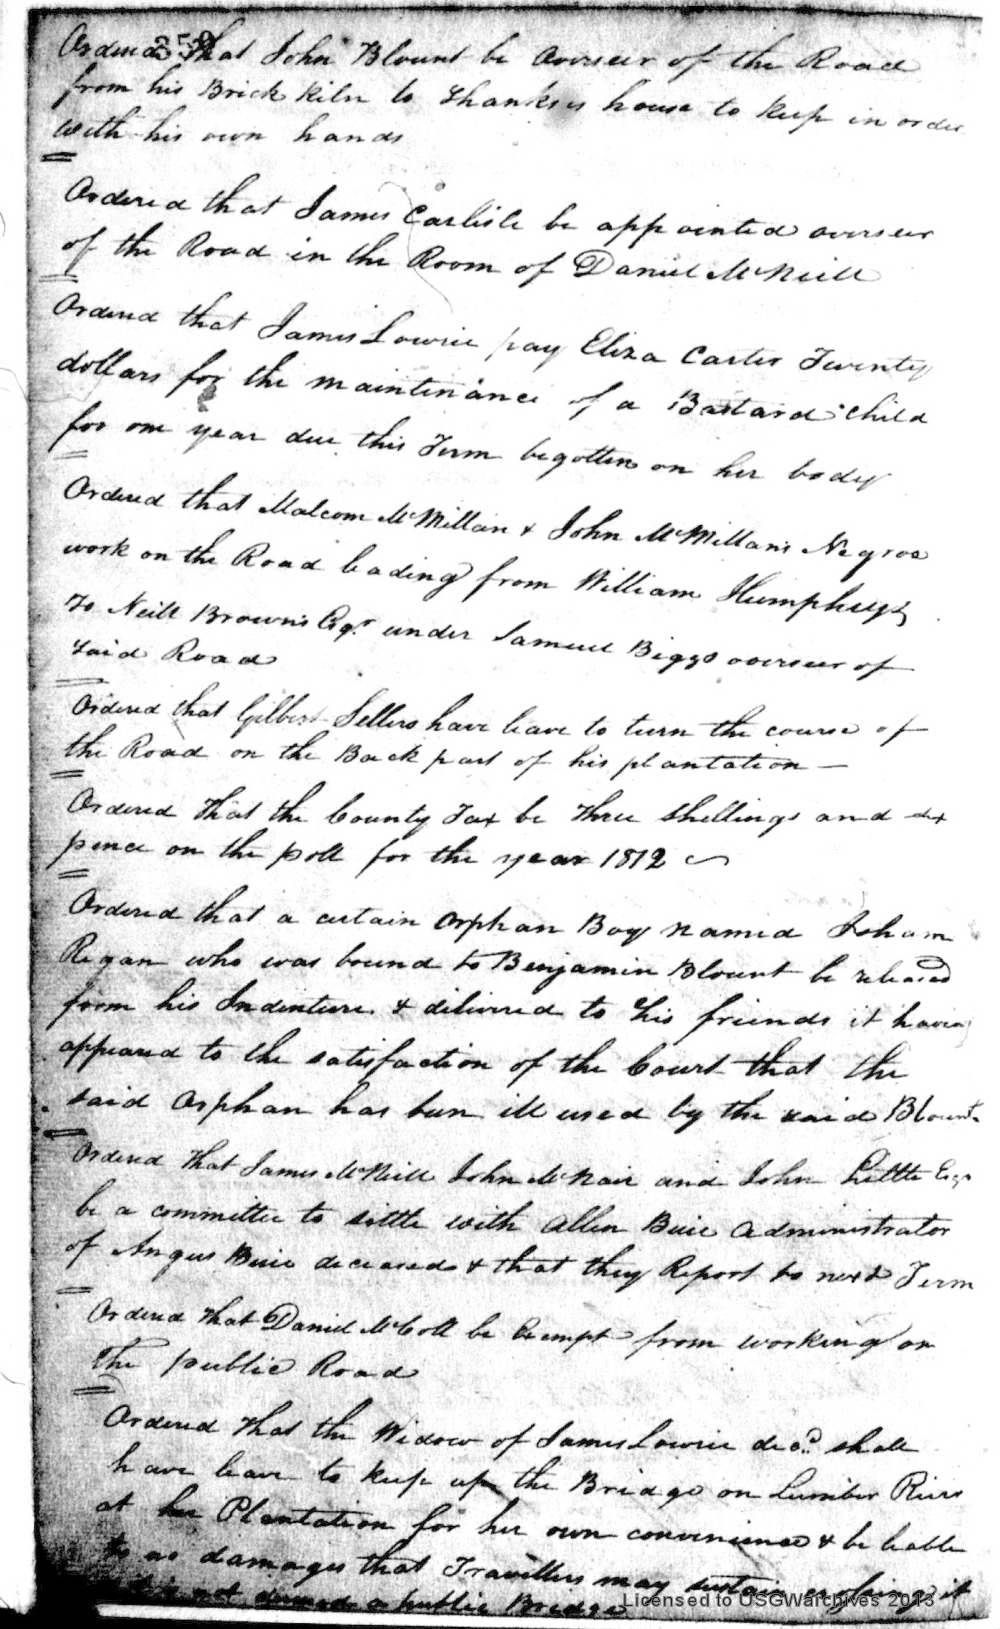 Ordered that John Blount be Overseer of the Road
from his Brick Kiln to Thankses house to Keep in order
with his own hands
Ordered that James Carlisle be appointed overseer
of the Road in the Room of Daniel McNeill
Ordered that James Lowrie pay Eliza Carter Twenty
dollars for the maintenance of a Bastard Child
for one year due this Term begotten on her body
Ordered that Malcom McMillan & John McMillans Negroe
work on the Road leading from William Humphreys
To Neill Brown's Esqr. under Samuel Biggs overseer of
said Road
Ordered that Gilbert Sellers have leave to turn the course of
the Road on the Back part of his plantation —
Ordered that the County Tax be Three Shellings and six
pence on the poll for the year 1812
Ordered that a certain Orphan Boy named Isham
Regan who was bound to Benjamin Blount be released
from his Indenture & delivered to his friends it having
appeared to the satisfaction of the Court that the
said Orphan has bun ill used by the said Blount
Ordered that James McNeill John McNair and John Little Esqr
be a committee to settle with Allen Buie Administrator
of Angus Buie deceased & that they Report to next Term
Ordered that Daniel McColl be Exempt from working on
the public Road
Ordered that the Widow of James Lowrie decd. shall
have leave to keep up the Bridge on Lumber River
at her Plantation for her own convenience & be liable
to no damages that Travellers may sustain crossing it
it is not deemed a public Bridge
Licensed to USGWarchives 2013